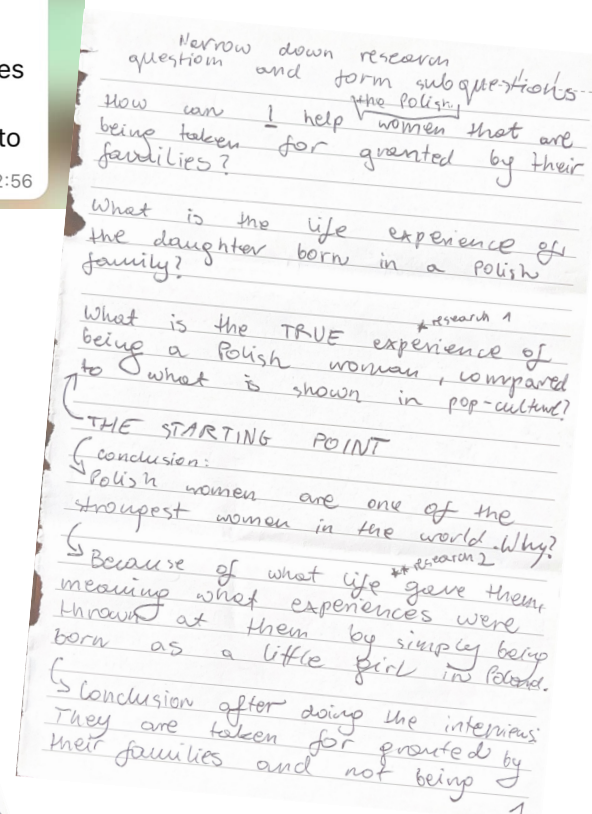 es
to
2:56
Narrow down research
question and form subquestions
the Polish
How can I help women that are
being taken for granted by their
families?
What is the life experience of
the daughter born in a Polish
family?
* research 1
What is the TRUE experience of
being a Polish woman, compared
to what is shown in pop-culture?
THE STARTING POINT
conclusion:
Polish women are one of the
strongest women in the world. Why?
** research 2
Because of what life gave them,
meaning what experiences were
thrown at them by simply being
born as a little girl in Poland.
Conclusion after doing the interviews
They are taken for granted by
their families and not being
1